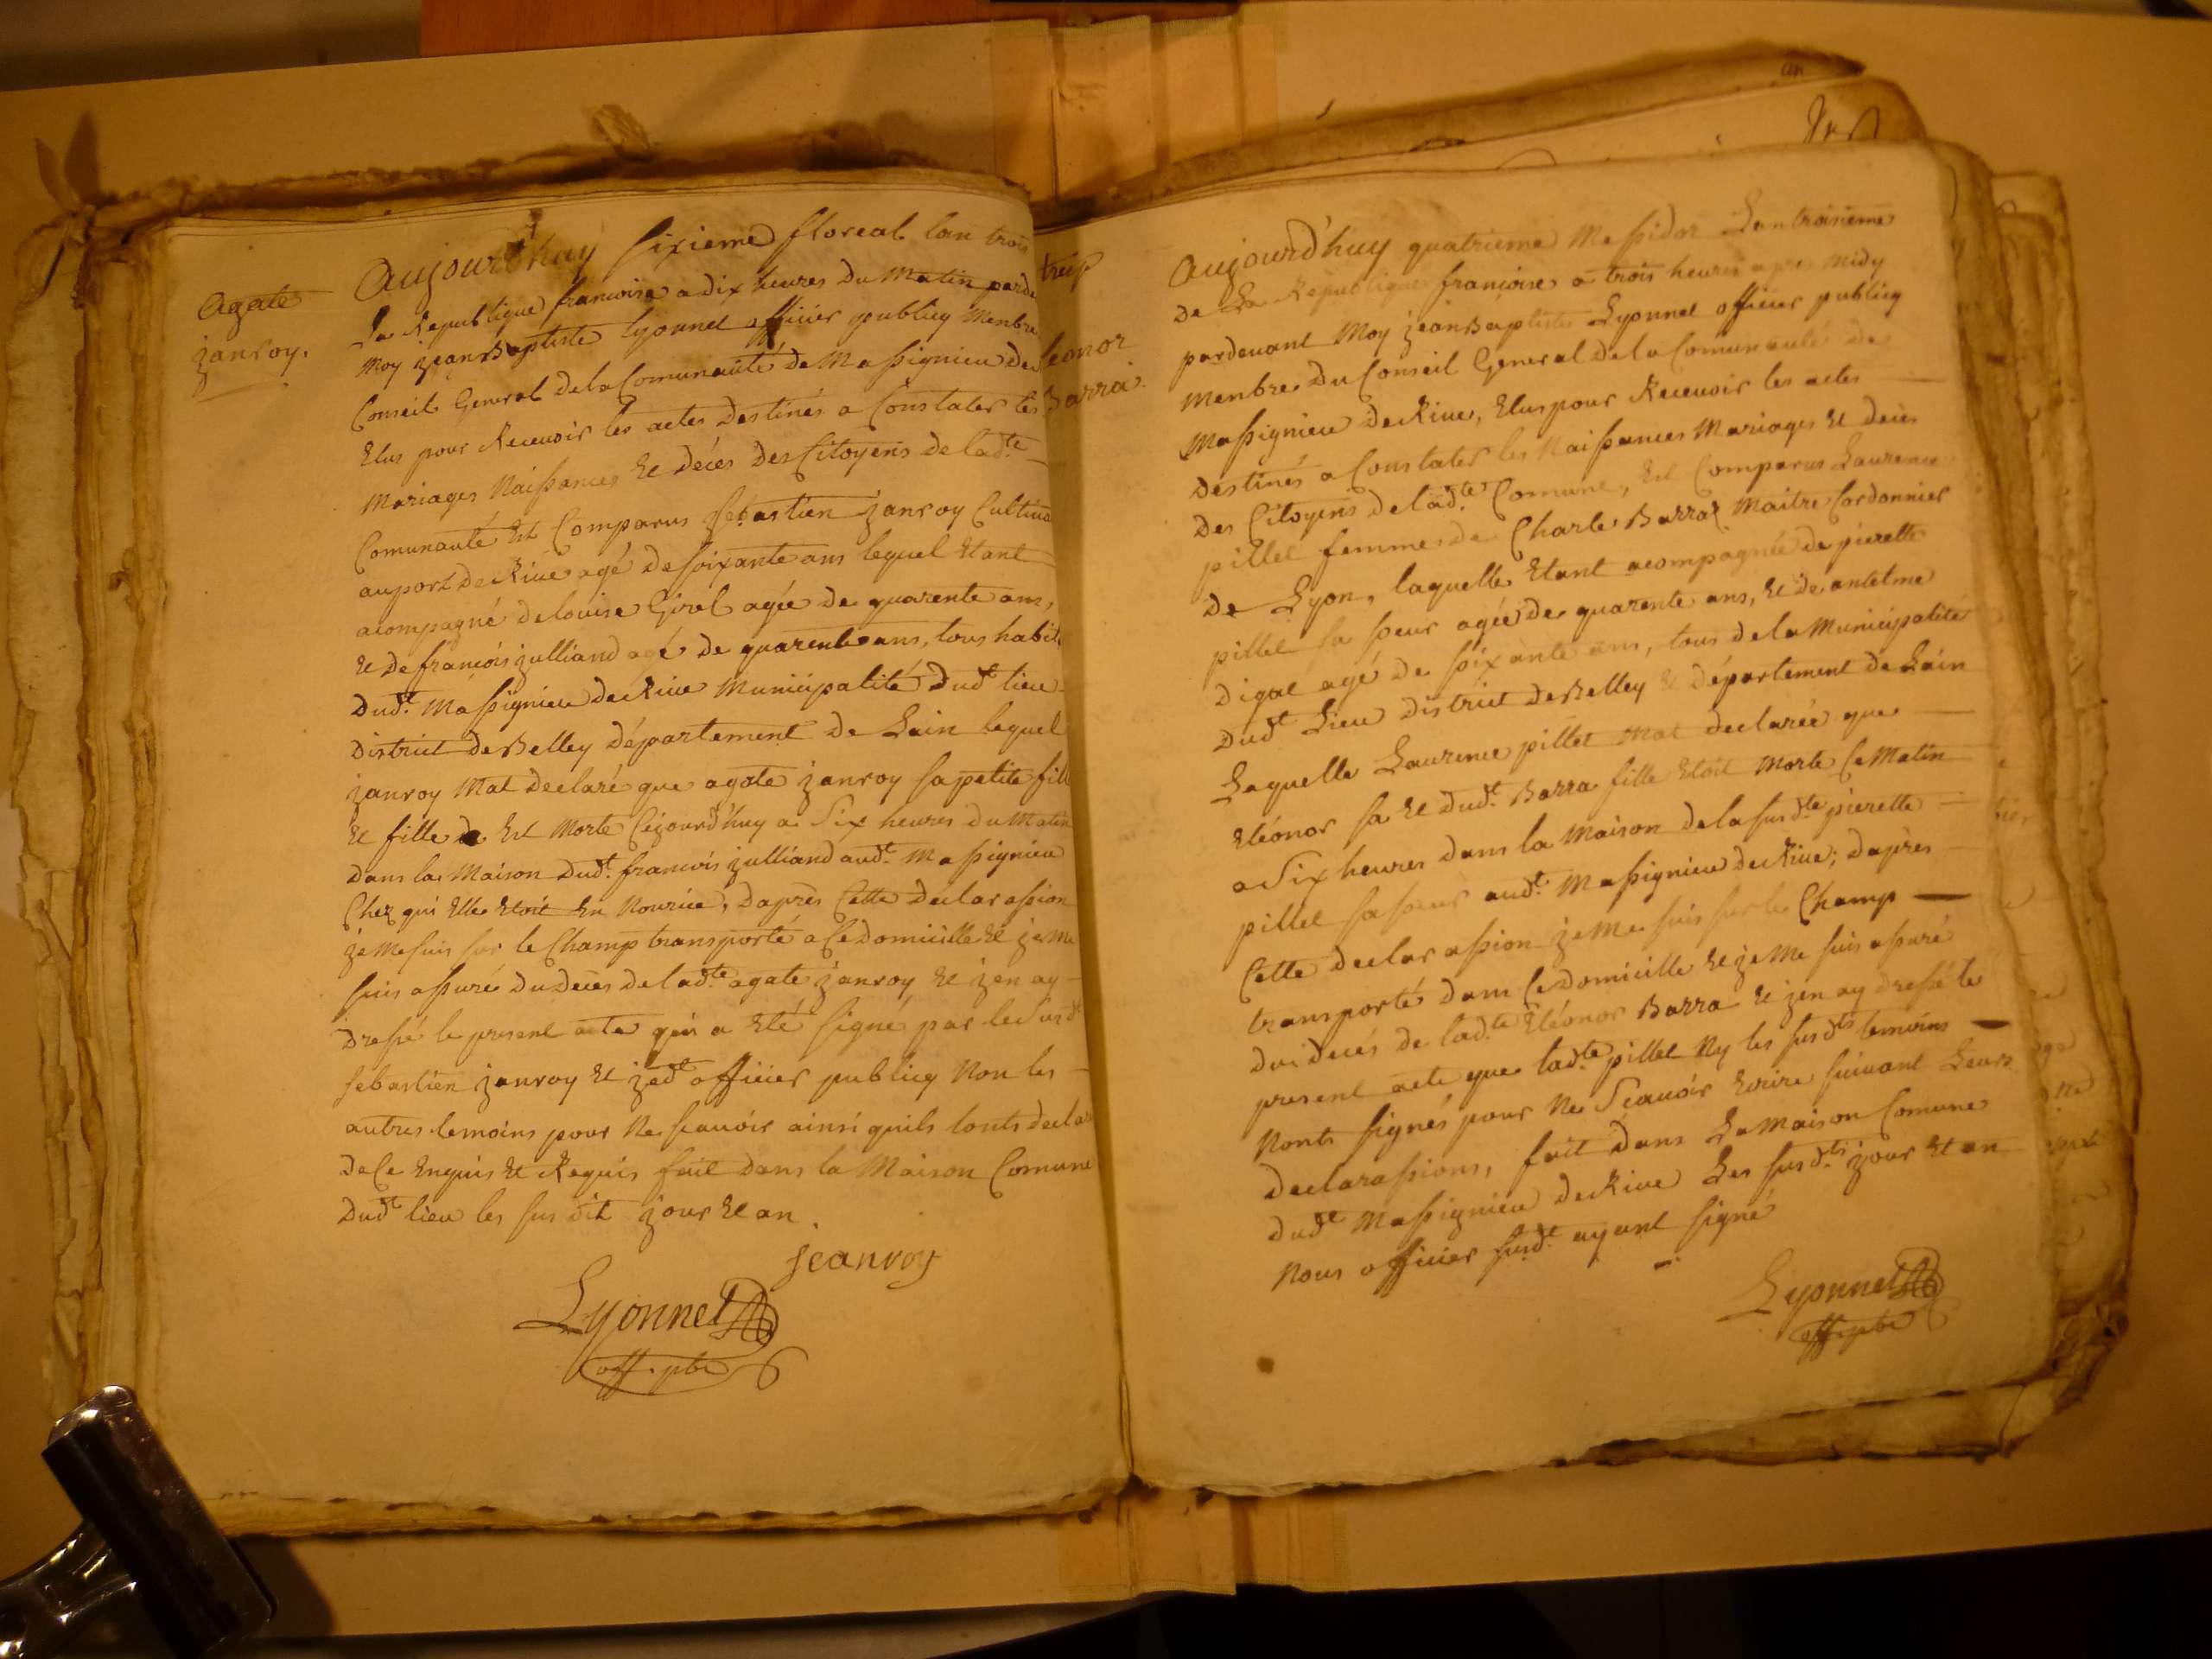 Agate
janroy.
Aujourdhuy sixieme floreal lan trois
La Republique francoise a dix heures du Matin parde
Moy jean Baptiste lyonnel officier publicq Menbre
Conseil General de la Comunauté de Massignieu de
Elus pour Recevoir les actes destinés a Constater les
Mariages Naissances et décés des Citoyens de ladte
Comunauté Est Comparus sebastien janroy Cultiva
au port de Rive agé de soixante ans lequel Etant
acompagné de louise Girel agée de quarente ans,
et de francois julliand agé de quarente ans, tous habit
dudt Massignieu de Rive Municipalité dudt lieu
district de Belley département de Lain lequel
janroy Mat declaré que agate janroy sa petite fill
et fille de Est Morte Cejourd'huy a Six heures du Matin
dans la Maison dudt francois julliand audt Massignieu
Chez qui Elle Etoit En Nourice, daprès Cette declarassion
je me suis sur le Champ transporté a Ce domicille et je me
suis assuré du deces de ladte agate janroy et jen ay
dressé le present acte qui a Eté signé par le Susdt
sebastien janroy et jedt officier publicq Non les
autres temoins pour Ne scauoir ainsi quils lonts declar
de Ce Enquis et Requis fait dans la Maison Comune
dudt lieu les sus dit jour et an.
jeanroy
Lyonnel
off. pbe
leonor
Barra.
Aujourd'huy quatrieme Messidor Lan troisieme
de La Republique françoise a trois heures apres Midy
pardeuant Moy jean Baptiste Lyonnel officier publicq
Menbre du Conseil General de la Comunauté de
Massignieu de Rive, Elus pour Recevoir les actes
destinés a Constater les Naissances Mariages et deces
des Citoyens de ladte Comune, Est Comparus Laurence
pillet femme de Charle Barraz Maitre Cordonnier
de Lyon, laquelle Etant acompagnée de pierette
pillet sa soeur agée de quarente ans, et de antelme
digat agé de soixante ans, tous de la Municipalité
dudt Lieu district de Belley et département de Lain
Laquelle Laurence pillet Mat declarée que
Eléonor sa et dudt Barra fille Etoit Morte Ce Matin
a Six heures dans la Maison de la susdte pierette
pillet sa soeur audt Massignieu de Rive; daprès
Cette declarassion je Me suis sur le Champ
transporté dans Ce domicille et je Me suis assuré
du decés de ladte Eléonor Barra et jen ay dressé le
present acte que ladte pillet Ny les susdts temoins
Nonts signés pour Ne Scauoir Ecrire suivant Leurs
declarassions, fait dans La Maison Comune
dudt Massignieu de Rive Les susdts jour et an
Nous officier susdt ayant signé
Lyonnel
off. pbe